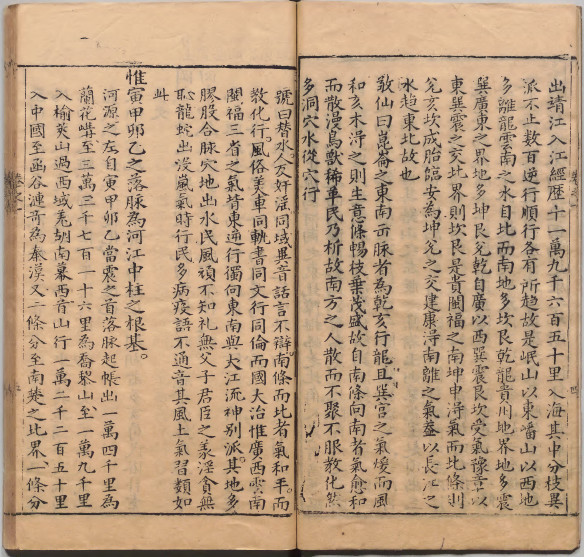 出靖江入江經歷十一萬九千六百五十里入海其中分枝異
派不止数百逆行順行各有所趋故是岷山以東嶓山以西地
多離龍雲南之水自北而南地多坎艮乾龍貴州地界地多震
巽廣東之界地多坤艮兊乾自廣以西巽震艮坎受氣豫章以
東巽震之交北界則坎艮是貴閩福之南坤申淂氣而北條則
兊亥坎成胎臨安為坤兊之交建康淂南離之氣盖以長江之
水趋東北故也
敎仙曰崑崙之東南而脉者為乾亥行龍且巽宫之氣煖而風
和亥木淂之則生意條暢枝垂茂盛故自南條向南者氣愈和
而散漫鳥獸稀单民乃析故南方之人散而不聚不服教化然
多洞穴水從穴行
號曰替水人交奸淫同域異音話言不辯南條而北者氣和平而
教化行風俗美車同軌書同文行同倫而國大治惟廣西雲南
閩福三省之氣背東逆行獨向東南與大江流神别派其地多
膠股合脉穴地出水民風頑不知礼無父子君臣之義淫貪無
恥龍蛇出没嵐氣時行民多病疫語不通音其風土氣習類如
此
惟寅甲卯乙之落脉為河江中柱之根基
河源之左自寅甲卯乙當震之首落脉起帳出一萬四千里為
蘭花嵴至三萬三千七百一十六里為喬峯山至一萬九千里
入榆莢山過西域羗胡南幕西音山行一萬二千二百五十里
入中國至函谷潼奇為秦漠又二條分至南㷼之北界一條分